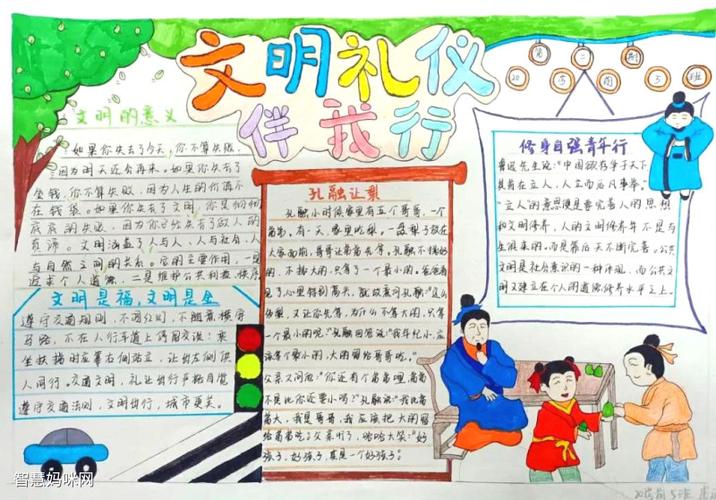 文明礼仪
伴我行
文明的意义
如果你失去了今天,你不算失败,
因为明天还会再来。如果你失去了
金钱,你不算失败,因为人生的价值不
在钱袋。如果你失去了文明,你是彻彻
底底的失败,因为你已经失去了做人的
真谛。文明涵盖了人与人,人与社会,人
与自然之间的关系。它的主要作用,一是
追求个人道德,二是维护公共利益秩序
文明是福,文明是金
遵守交通规则,不闯红灯,不随意横穿
马路,不在人行车道上停留交谈;乘
坐扶梯时应靠右侧站立,让出左侧供
人同行。交通文明,礼让出行严格自觉
遵守交通法则,文明出行,城市更美。
孔融让梨
孔融小时候家里有五个哥哥,一个
弟弟,有一天,家里吃梨。一盘梨子放在
大家面前,哥哥让弟弟先拿。孔融不挑好
的,不拣大的,只拿了一个最小的。爸爸看
见了心里特别高兴,就故意问孔融:"这么
多梨,又让你先拿,为什么不拿大的,只拿
一个最小的呢?"孔融回答说:"我年纪小,应
该拿个最小的,大的留给哥哥吃。"
父亲又问他:"你还有个弟弟哩,弟弟
不是比你还要小吗?"孔融说:"我比弟
弟大,我是哥哥,我应该把大的留
给弟弟吃。"父亲听了,哈哈大笑:"好
孩子,好孩子,真是一个好孩子。"
修身自强青年行
鲁迅先生说:"中国欲存争于天下
其首在立人,人立而后凡事举。"
"立人"的意思便是要完善人的思想
和文明修养,人的文明修养并不是与
生俱来的,而是靠后天不断完善。公共
文明是社会意识的一种体现,而公共文
明又建立在个人的道德修养水平之上。
智慧妈咪网